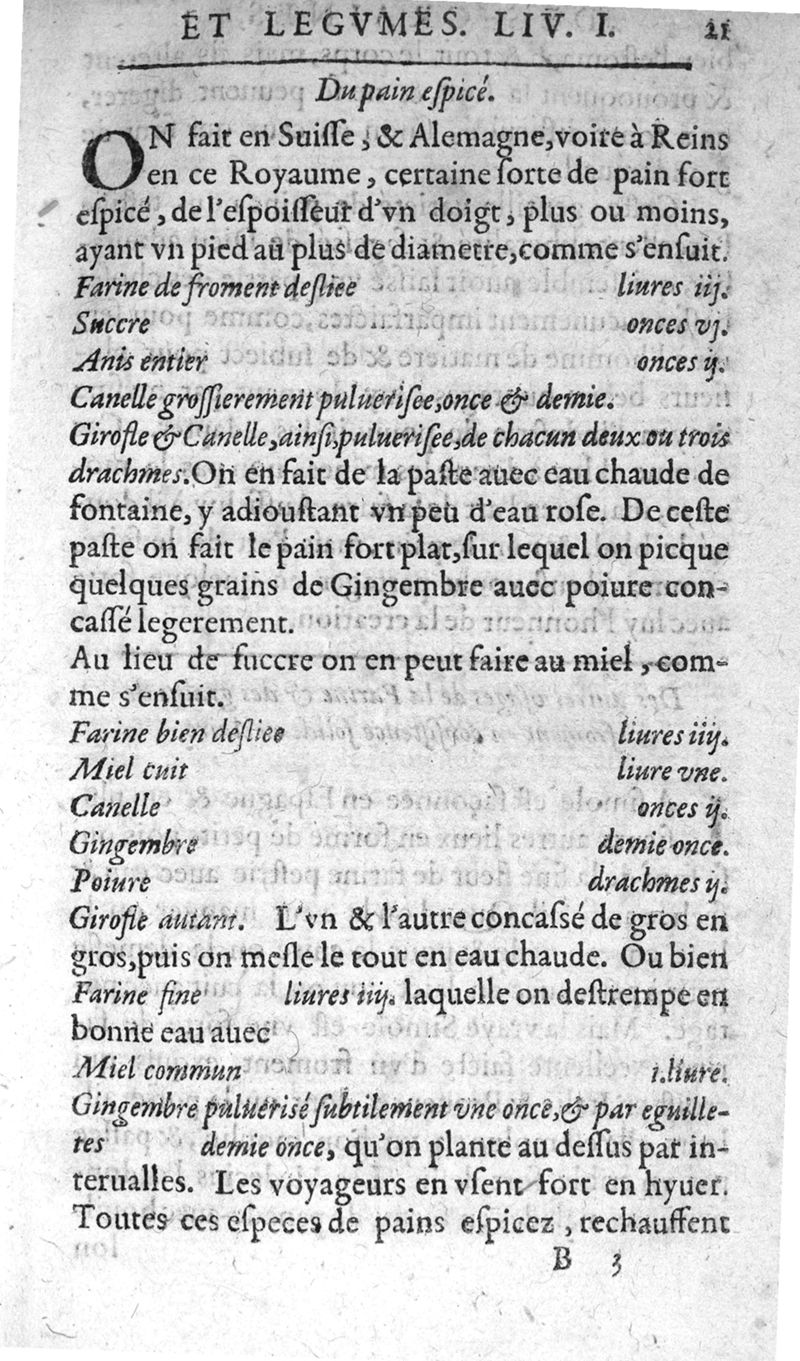 ET LEGVMES. LIV. I. 21
Du pain eſpicé.
ON fait en Suiſſe, & Alemagne, voire à Reins
en ce Royaume, certaine ſorte de pain fort
eſpicé, de l'eſpoiſſeur d'vn doigt, plus ou moins,
ayant vn pied au plus de diametre, comme s'enſuit.
Farine de froment deſliee liures iij.
Succre onces vj.
Anis entier onces ij.
Canelle groſſierement puluериſee, once & demie.
Girofle & Canelle, ainſi, pulueriſee, de chacun deux ou trois
drachmes. On en fait de la paſte auec eau chaude de
fontaine, y adiouſtant vn peu d'eau roſe. De ceſte
paſte on fait le pain fort plat, ſur lequel on picque
quelques grains de Gingembre auec poiure con-
caſſé legerement.
Au lieu de ſuccre on en peut faire au miel, com-
me s'enſuit.
Farine bien deſliee liures iiij.
Miel cuit liure vne.
Canelle onces ij.
Gingembre demie once.
Poiure drachmes ij.
Girofle autant. L'vn & l'autre concaſſé de gros en
gros, puis on meſle le tout en eau chaude. Ou bien
Farine fine liures iiij. laquelle on deſtrempe en
bonne eau auec
Miel commun i. liure.
Gingembre pulueriſé ſubtilement vne once, & par eguille-
tes demie once, qu'on plante au deſſus par in-
terualles. Les voyageurs en vſent fort en hyuer.
Toutes ces eſpeces de pains eſpicez, rechauffent
B 3